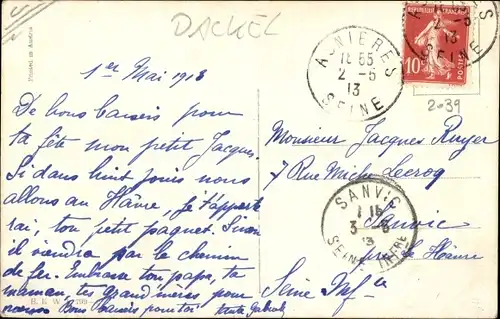 DACKEL
Printed in Austria
1er Mai 1913
De bons baisers pour
ta fête mon petit Jacques.
Si dans huit jours nous
allons au Hâvre, je t'apporte
rai, ton petit paquet. Sinon
il viendra par le chemin
de fer. Embrasse ton papa, ta
maman, tes grand'mères pour
nous Bons baisers pour toi tante Gabrielle
B. K. W.
ASNIERES
11 55
2 - 5
13
SEINE
10
2039
Monsieur Jacques Ruyer
7 Rue Michel Lecroq
Sanvic
près le Hâvre
Seine Infre
SANVIC
1 15
3 - 5
13
SEINE INFRE